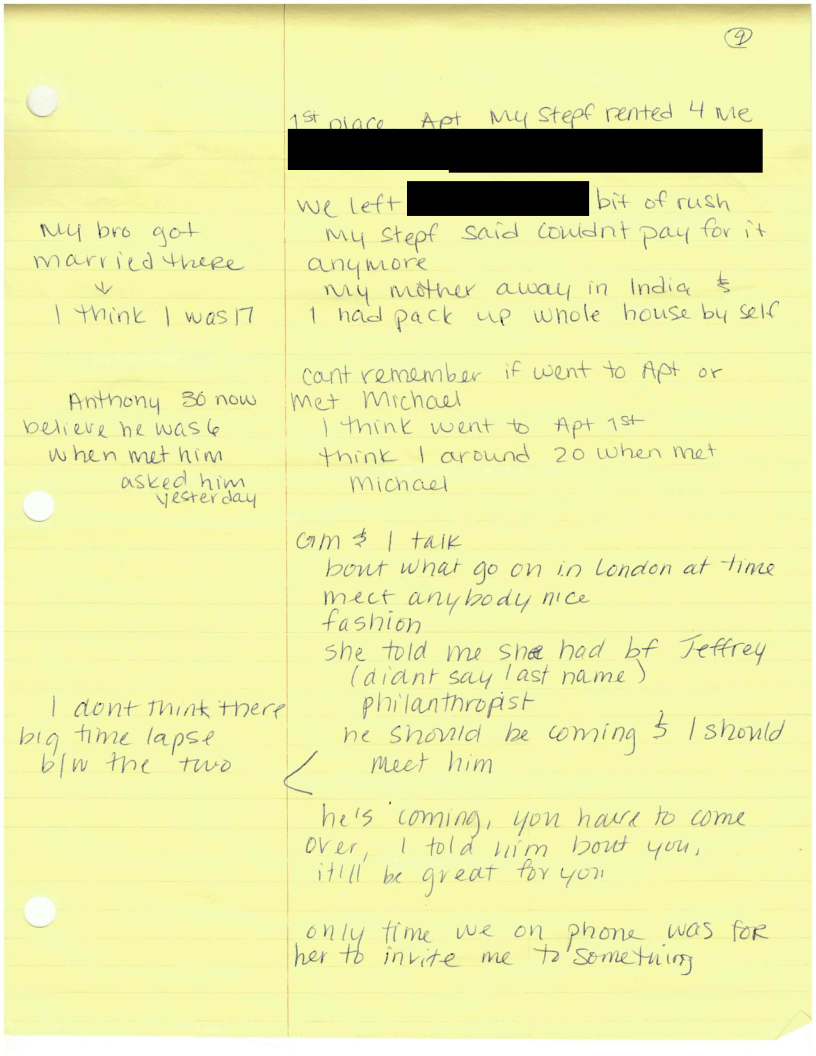 9
1st place Apt My Stepf rented 4 Me
we left bit of rush
My stepf said couldnt pay for it
anymore
My mother away in India &
I had pack up whole house by self
My bro got
married there
↓
I think I was 17
cant remember if went to Apt or
Met Michael
I think went to Apt 1st
think I around 20 when met
Michael
Anthony 36 now
believe he was 6
when met him
asked him
yesterday
GM & I talk
bout what go on in London at time
meet anybody nice
fashion
she told me she had bf Jeffrey
(didnt say last name)
philanthropist
he should be coming & I should
Meet him
I dont think there
big time lapse
b/w the two
he's coming, you have to come
over, I told him bout you,
it'll be great for you
only time we on phone was for
her to invite me to something